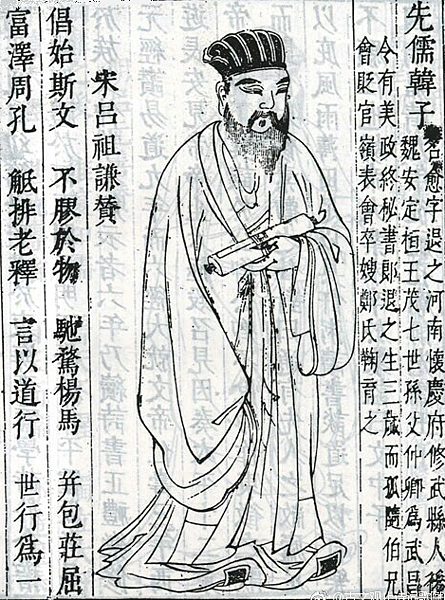 先儒韓子名愈字退之河南懷慶府修武縣人後
魏安定桓王茂七世孫父仲卿爲武昌
令有美政終秘書郞退之生三歲而孤隨伯兄
會貶官嶺表會卒嫂鄭氏鞠育之
宋呂祖謙贊
倡始斯文 不膠於物 馳騖楊馬 并包莊屈
富澤周孔 觝排老釋 言以道行 世行爲一